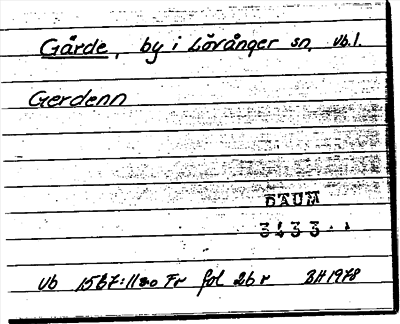 Gårde, by i Lövånger sn, Vb.l.
Gerdenn
DAUM
3433
Vb 1567:11 Fr fol 26 r BH 1978